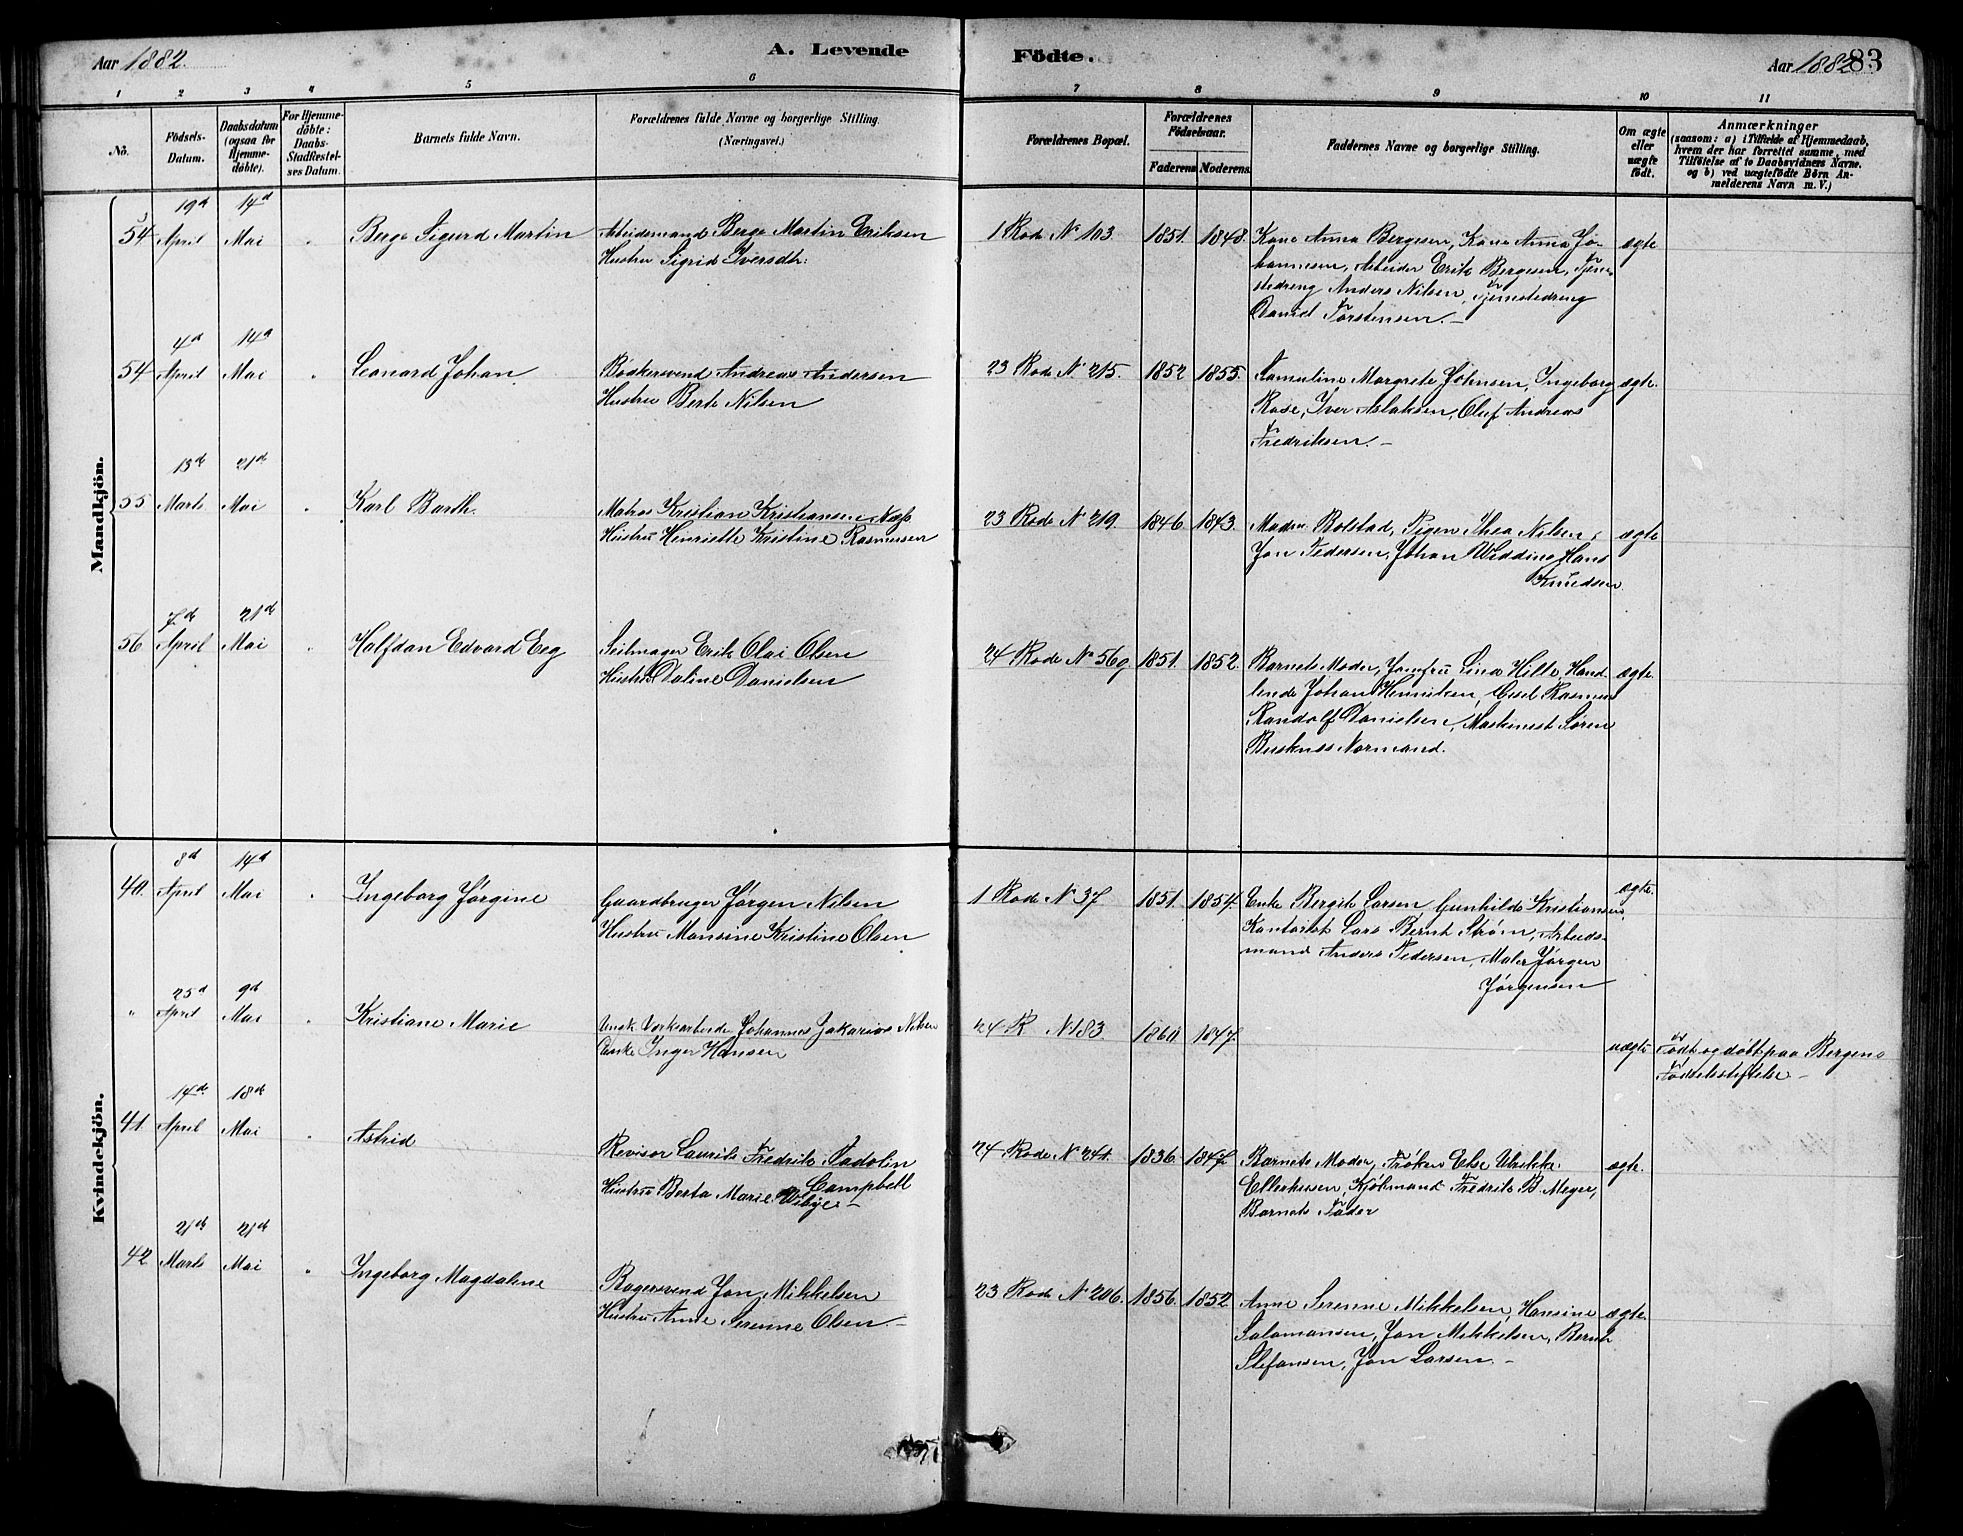 Aar 1882.
A. Levende
Födte.
Aar 1882
83
1 2 3 4 5 6 7 8 9 10 11
No.
Födsels-
Datum.
Daabsdatum
(ogsaa for
Hjemme-
döbte).
For Hjemme-
döbte:
Daabs-
Stadfæstel-
ses Datum.
Barnets fulde Navn.
Forældrenes fulde Navne og borgerlige Stilling.
(Næringsvei.)
Forældrenes Bopæl.
Forældrenes
Födselsaar.
Faderens
Moderens
Faddernes Navne og borgerlige Stilling.
Om ægte
eller
uægte
födt.
Anmærkninger
(saasom: a) i Tilfælde af Hjemmedaab,
hvem der har forrettet samme, med
Tilföielse af to Daabsvidners Navne,
og b) ved uægtefödte Börn An-
melderens Navn m. V.)
Mandkjön.
54 19d April 14d Mai " Berge Sigurd Martin
Arbeidsmand Berge Martin Eriksen
Hustru Sigrid Iversdtr.
1 Rode No 103. 1851. 1848.
Kone Anna Bergesen, Kone Anna Jo-
hannesen, Arbeider Erik Bergesen, Tjene-
stedreng Anders Nilsen, Tjenestedreng
Daniel Torstensen. –
ægte
54 4d April 14d Mai " Leonard Johan
Bødkersvend Andreas Andersen
Hustru Berte Nilsen
23 Rode N 215. 1852 1855.
Samuline Margrete Johnsen, Ingeborg
Rose, Iver Aslaksen, Oluf Andreas
Fredriksen. –
ægte.
55 13de Marts 21de Mai " Karl Barth.
Matros Kristian Kristiansen Næss
Hustru Henriette Kristine Rasmussen
23 Rode N 219. 1846. 1843.
Madm Bolstad, Pigen Thea Nilsen,
Jon Pedersen, Johan Widding, Hans
Knudsen
ægte
56 7de April 21de Mai " Halfdan Edvard Eeg
Seilmager Erik Olai Olsen
Hustru Daline Danielsen
24 Rode No 560. 1851. 1852.
Barnets Moder, Jomfru Lina Hille, Hand-
lende Johan Henriksen, Rasmus
Randolf Danielsen, Maskinist Søren
Normand.
ægte.
Kvindekjön.
40. 8d April 14d Mai " Ingeborg Jørgine
Gaardbruger Jørgen Nilsen
Hustru Monsine Kristine Olsen
1 Rode No 37 1851. 1854.
Enke Bergite Larsen Gunhilde Kristiansen,
Kontorist Lars Bernt Strøm, Arbeids-
mand Anders Pedersen, Maler Jørgen
Jørgensen
ægte.
" 25d April 9d Mai " Kristiane Marie
Ungk Værksarbeider Johannes Jakarias Nilsen
Enke Inger Hansen
24 R N 183. 1860. 1847.
uægte
Født og døbt paa Bergens
Fødselsstiftelse –
41. 14de April 18de Mai " Astrid
Revisor Laurits Fredrik Sadolin
Campbell
Hustru Berta Marie Wibye –
24 Rode N 241. 1836. 1847
Barnets Moder, Frøken Else Ulrikke
Ellerhusen, Kjøbmand Fredrik B. Meyer,
Barnets Fader
ægte.
42 21de Marts 21de Mai " Ingeborg Magdalene
Bagersvend Jon Mikkelsen
Hustru Anne Serenne Olsen –
23 Rode N 206. 1856. 1852.
Anne Serenne Mikkelsen, Hansine
Salamonsen, Jon Mikkelsen, Bernt
Stefansen, Jon Larsen. –
ægte.